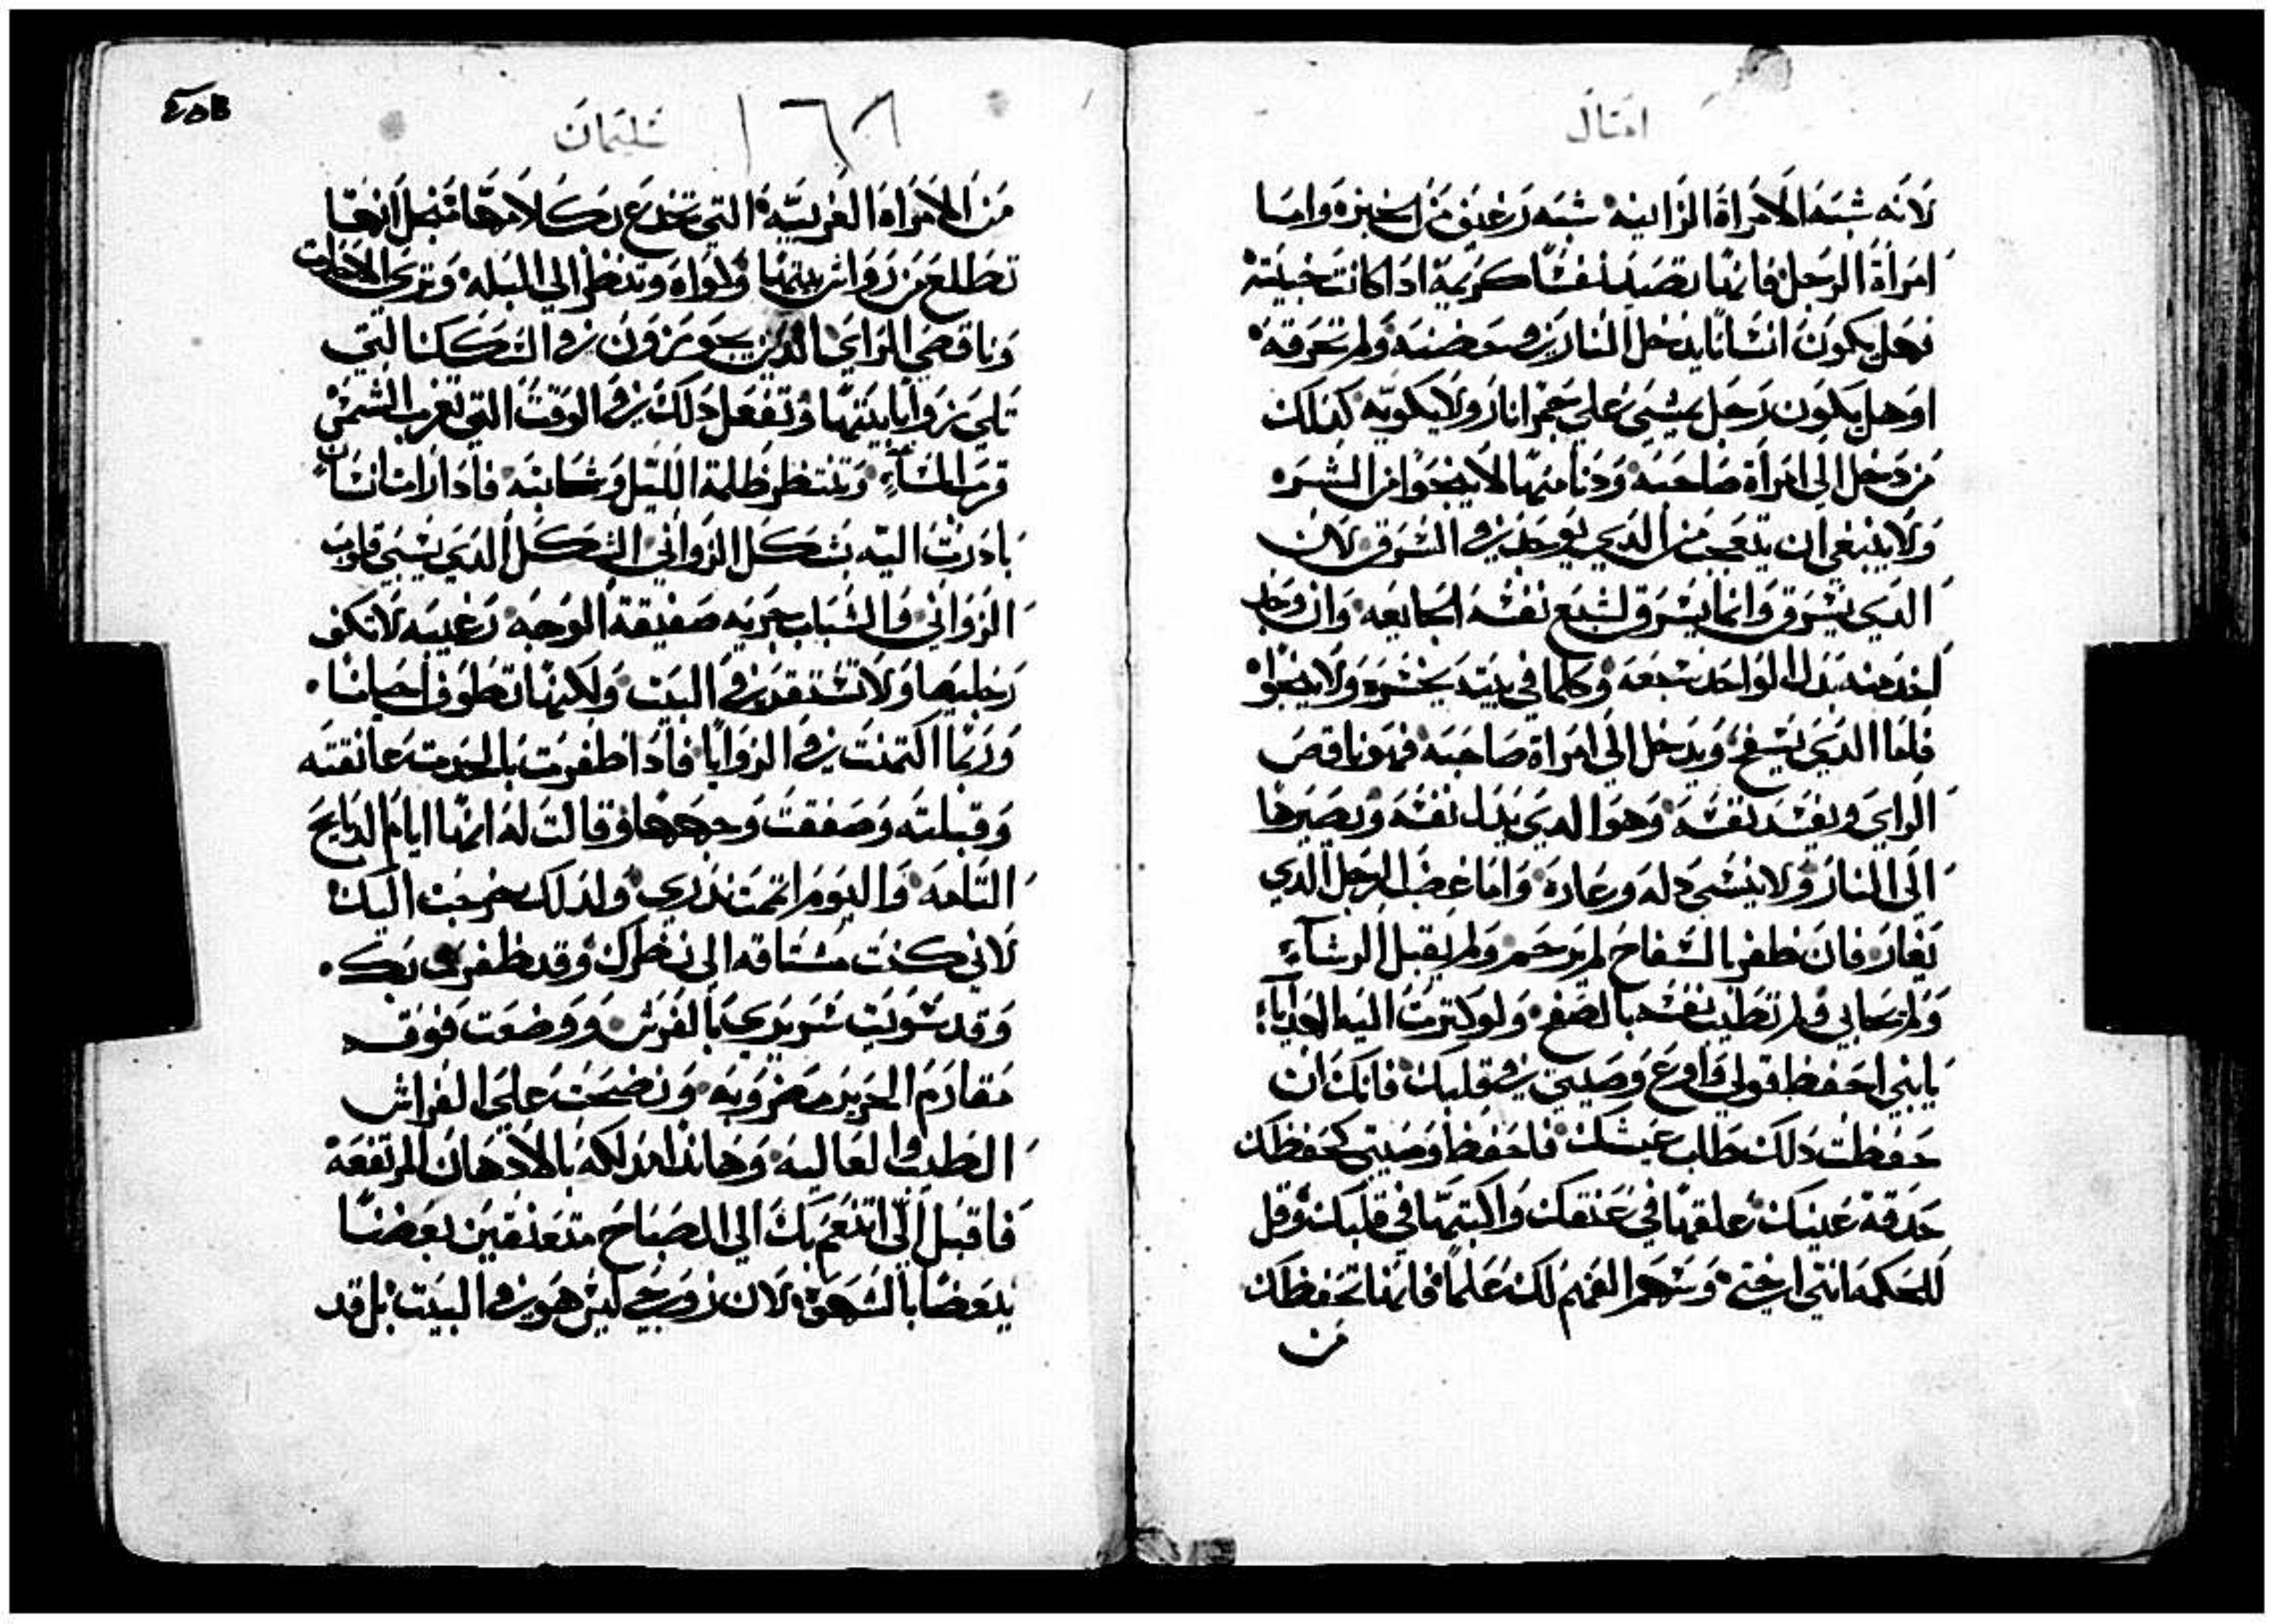 امتال
لانه شبه الامراة الزانيه شبه رغيف من الخبزه واما
امراة الرجل فانها تصيد نفسًا كريمة ادا كانت خبيثه
فهل يكون انسانًا يدخل النار في حضنه ولم تحرقه
او هل يكون رجل يمشي علي جمر نار ولا يكويه كدلك
من دخل الي امراة صاحبه ودنا منها لا ينجوا من الشره
ولا ينبغي ان يتعجب من الدي يوجد في السرق لان
الدي يسرق وانما يسرق لشبع نفسه الجايعه وان وجد
اخد منه بدل الواحد سبعه وكلما في بيته يخسره ولا ينجوا
فاما الدي يسفح ويدخل الي امراة صاحبه فهو ناقص
الراي ويفسد نفسه وهو الدي يبدل نفسه ويصيرها
الي النار ولا ينسي دله وعاره واما غضب الرجل الدي
يغار فان ظفر بالسفاح لم يرحم ولم يقبل الرشاء
ولم يحابي ولم تطيب نفسه بالصفح ولو كترت اليه الهدايا
يا بني احفظ قولي واوع وصيتي في قلبك فانك ان
حفظت دلك طاب عيشك فاحفظ وصيتي كحفظك
حدقة عينيك علقها في عنقك واكتبها في قلبك وقل
للحكمه انتي اختي وسم الفهم لك علما فانها تحفظك
من
سليمان
٤٥B
من الامراه الغريبه التي تخدع بكلامها من اجل انها
تطلع من رواشن بيتها وكواه وتنظر الي البله وتري الاحدات
وناقصي الراي الدين يجوزون في السكك التي
تلي زوايا بيتها وتفعل دلك في الوقت التي تغرب الشمس
قرب المساء وتنتظر ظلمة الليل وسحابته فادا رات انسان
بادرت اليه بشكل الزواني الشكل الدي يسبي قلوب
الزواني والشباب جريه صفيقة الوجه رغيبه لا تكف
رجليها ولا تستقر في البيت ولكنها تطوف احيانًا
وربما اكتمنت في الزوايا فادا ظفرت بالحدت عانقته
وقبلته وصفقت وجهها وقالت له انها ايام الدبايح
التامه واليوم اتممت ندري ولدلك خرجت اليك
لاني كنت مشتاقه الي نظرك وقد ظفرت بك
وقد سويت سريري بالفرش ووضعت فوقه
مقارم الحرير مضروبه ونضحت علي الفراش
الطيب والغاليه وهاندا ادلكه بالادهان المرتفعه
فاقبل الي اتنعم بك الي الصباح متعنقين بعضنا
بعضًا بالشهق لان زوجي ليس هو في البيت بل قد